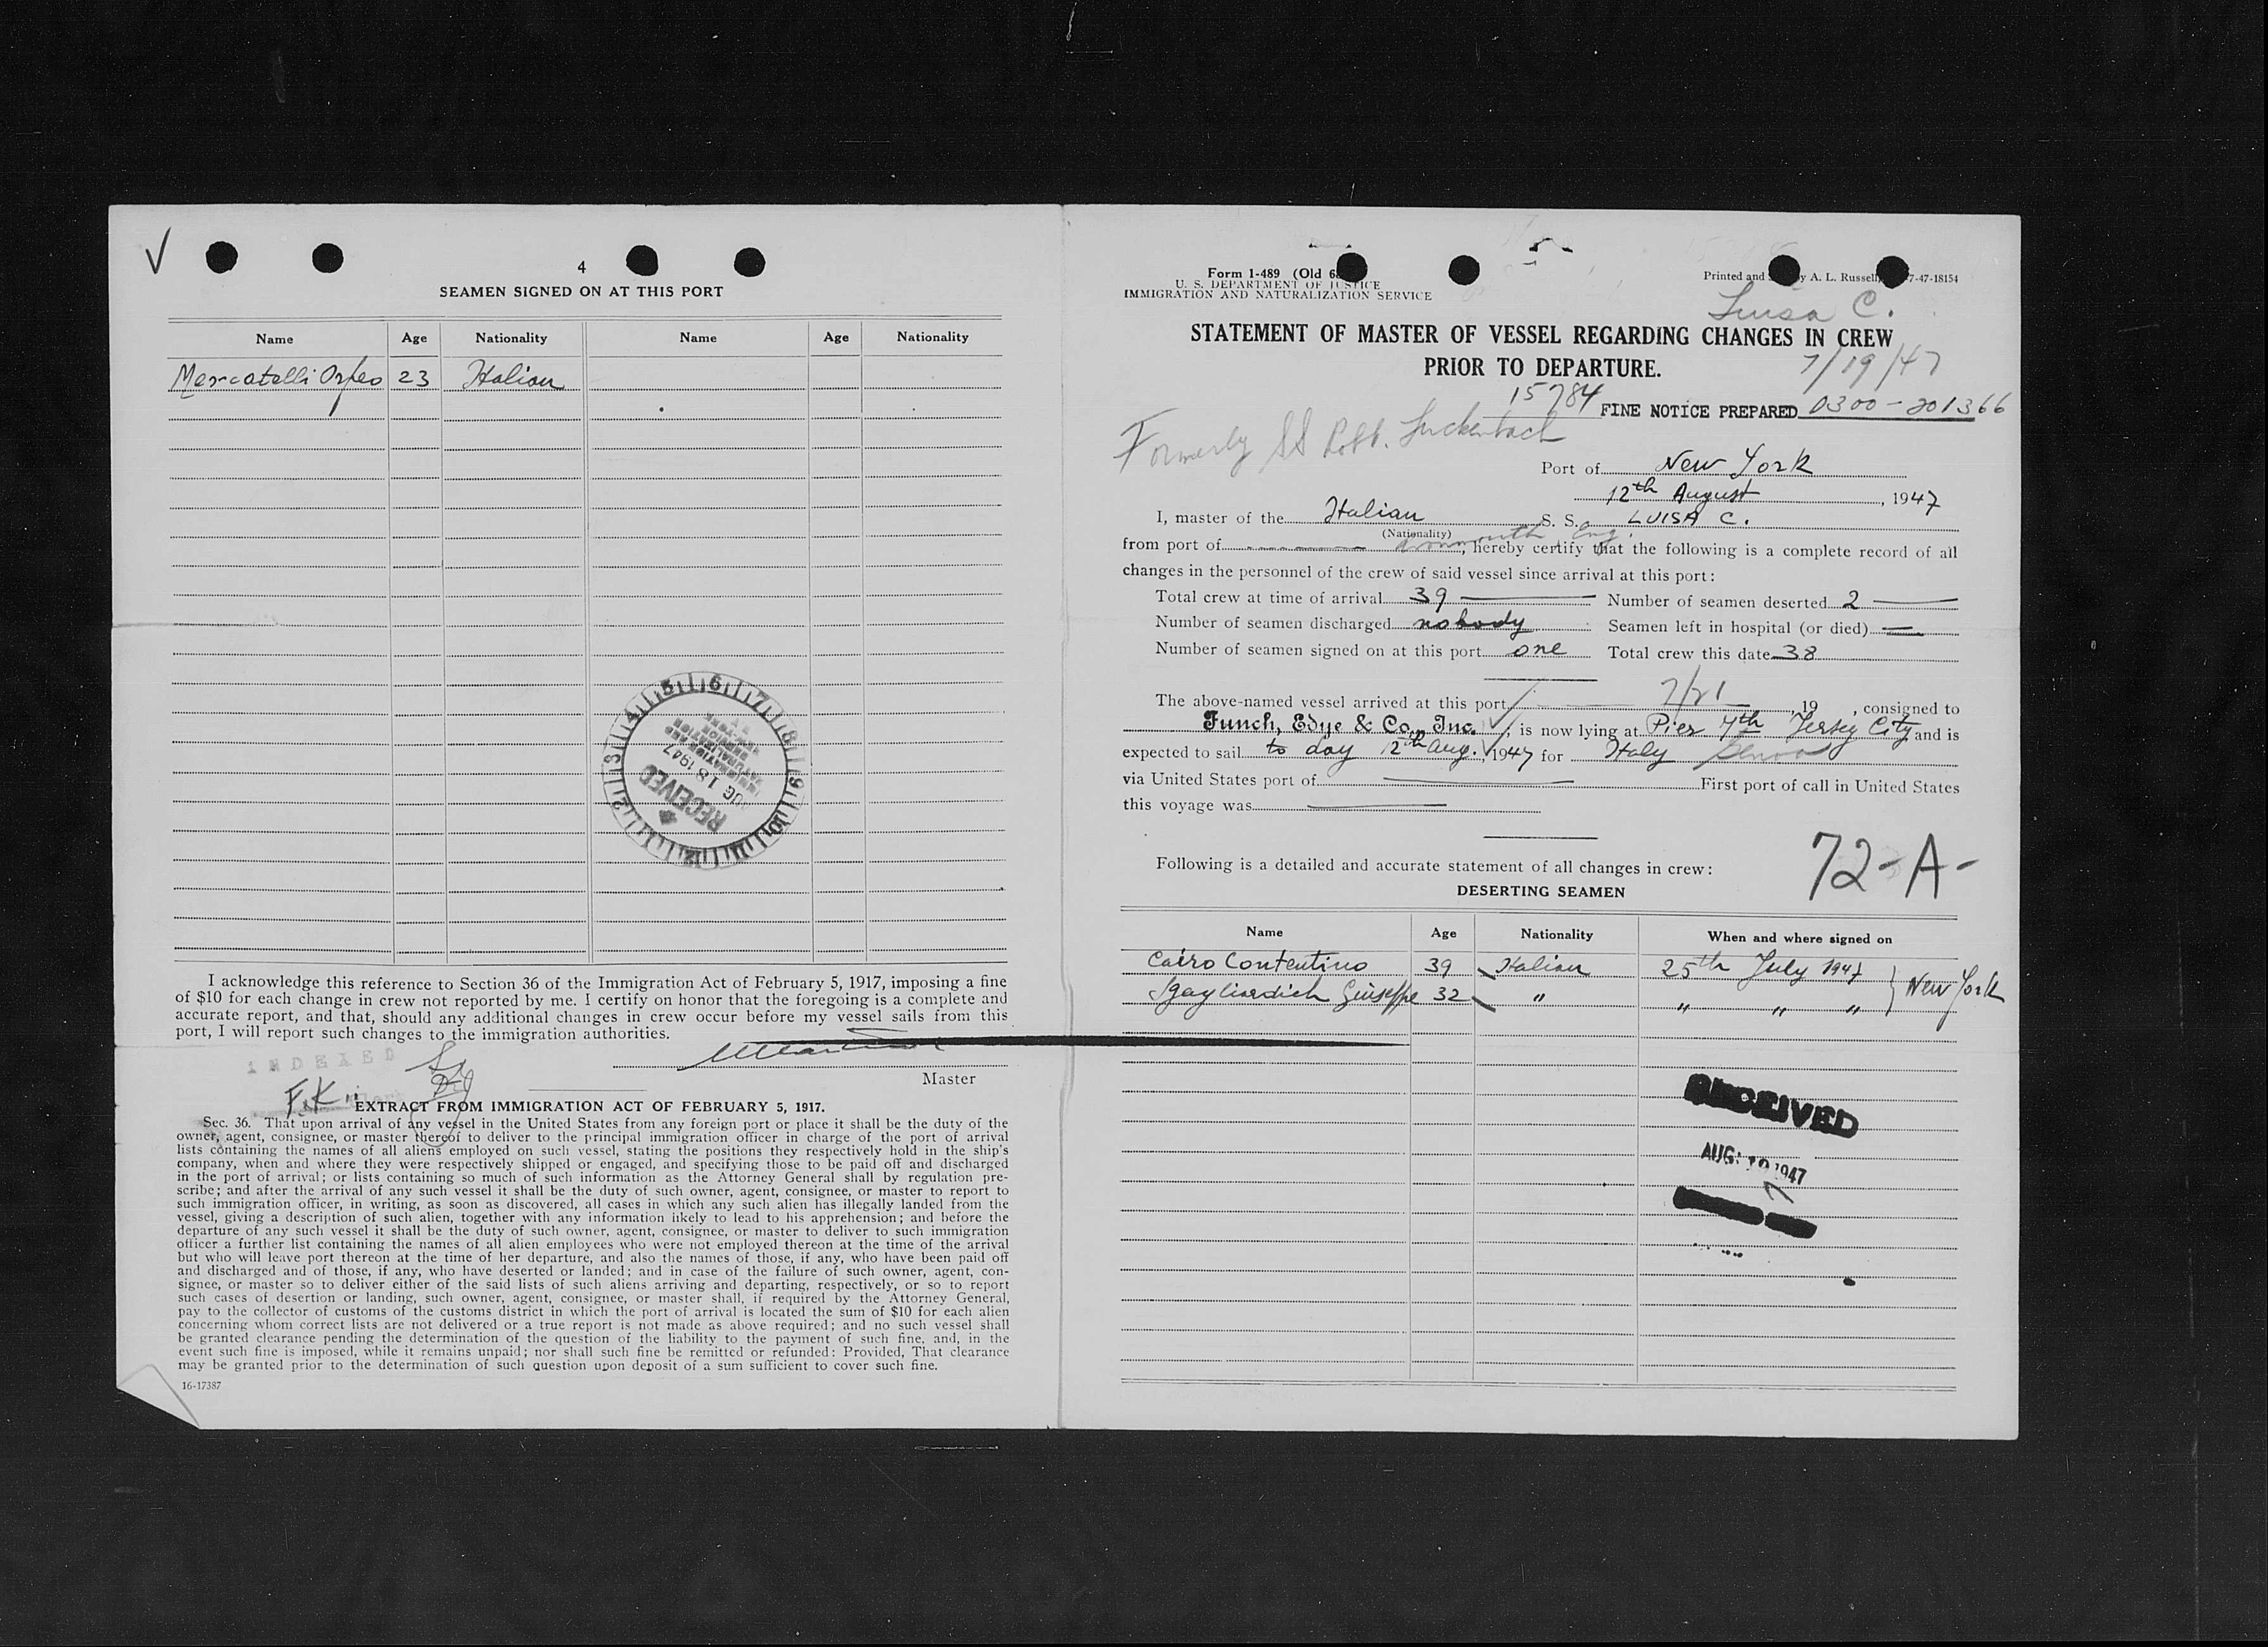 4
SEAMEN SIGNED ON AT THIS PORT
Name Age Nationality Name Age Nationality
Mercatelli Orfeo 23 Italian
RECEIVED
AUG 18 1947
IMMIGRATION AND
NATURALIZATION
SERVICE
I acknowledge this reference to Section 36 of the Immigration Act of February 5, 1917, imposing a fine
of $10 for each change in crew not reported by me. I certify on honor that the foregoing is a complete and
accurate report, and that, should any additional changes in crew occur before my vessel sails from this
port, I will report such changes to the immigration authorities.
INDEXED
Master
F.K.
EXTRACT FROM IMMIGRATION ACT OF FEBRUARY 5, 1917.
Sec. 36. That upon arrival of any vessel in the United States from any foreign port or place it shall be the duty of the
owner, agent, consignee, or master thereof to deliver to the principal immigration officer in charge of the port of arrival
lists containing the names of all aliens employed on such vessel, stating the positions they respectively hold in the ship's
company, when and where they were respectively shipped or engaged, and specifying those to be paid off and discharged
in the port of arrival; or lists containing so much of such information as the Attorney General shall by regulation pre-
scribe; and after the arrival of any such vessel it shall be the duty of such owner, agent, consignee, or master to report to
such immigration officer, in writing, as soon as discovered, all cases in which any such alien has illegally landed from the
vessel, giving a description of such alien, together with any information likely to lead to his apprehension; and before the
departure of any such vessel it shall be the duty of such owner, agent, consignee, or master to deliver to such immigration
officer a further list containing the names of all alien employees who were not employed thereon at the time of the arrival
but who will leave port thereon at the time of her departure, and also the names of those, if any, who have been paid off
and discharged and of those, if any, who have deserted or landed; and in case of the failure of such owner, agent, con-
signee, or master so to deliver either of the said lists of such aliens arriving and departing, respectively, or so to report
such cases of desertion or landing, such owner, agent, consignee, or master shall, if required by the Attorney General,
pay to the collector of customs of the customs district in which the port of arrival is located the sum of $10 for each alien
concerning whom correct lists are not delivered or a true report is not made as above required; and no such vessel shall
be granted clearance pending the determination of the question of the liability to the payment of such fine, and, in the
event such fine is imposed, while it remains unpaid; nor shall such fine be remitted or refunded: Provided, That clearance
may be granted prior to the determination of such question upon deposit of a sum sufficient to cover such fine.
16-17387
Form 1-489 (Old 6
U. S. DEPARTMENT OF JUSTICE
IMMIGRATION AND NATURALIZATION SERVICE
Printed and y A. L. Russell 7-47-18154
Luisa C.
STATEMENT OF MASTER OF VESSEL REGARDING CHANGES IN CREW
PRIOR TO DEPARTURE.
7/19/47
15784 FINE NOTICE PREPARED 0300-201366
Formerly SS Robt. Luckenbach
Port of New York
12th August, 1947
I, master of the Italian S. S. LUISA C.
(Nationality)
from port of Avonmouth Eng., hereby certify that the following is a complete record of all
changes in the personnel of the crew of said vessel since arrival at this port:
Total crew at time of arrival 39 Number of seamen deserted 2
Number of seamen discharged nobody Seamen left in hospital (or died) —
Number of seamen signed on at this port one Total crew this date 38
The above-named vessel arrived at this port 7/21, 19 , consigned to
Funch, Edye & Co., Inc., is now lying at Pier 7th Jersey City and is
expected to sail to day 12th Aug., 1947 for Italy Genoa
via United States port of First port of call in United States
this voyage was
72-A-
Following is a detailed and accurate statement of all changes in crew:
DESERTING SEAMEN
Name Age Nationality When and where signed on
Cairo Contentino 39 Italian 25th July 1947 New York
Sgagliardich Giuseppe 32 " " " "
RECEIVED
AUG 1947